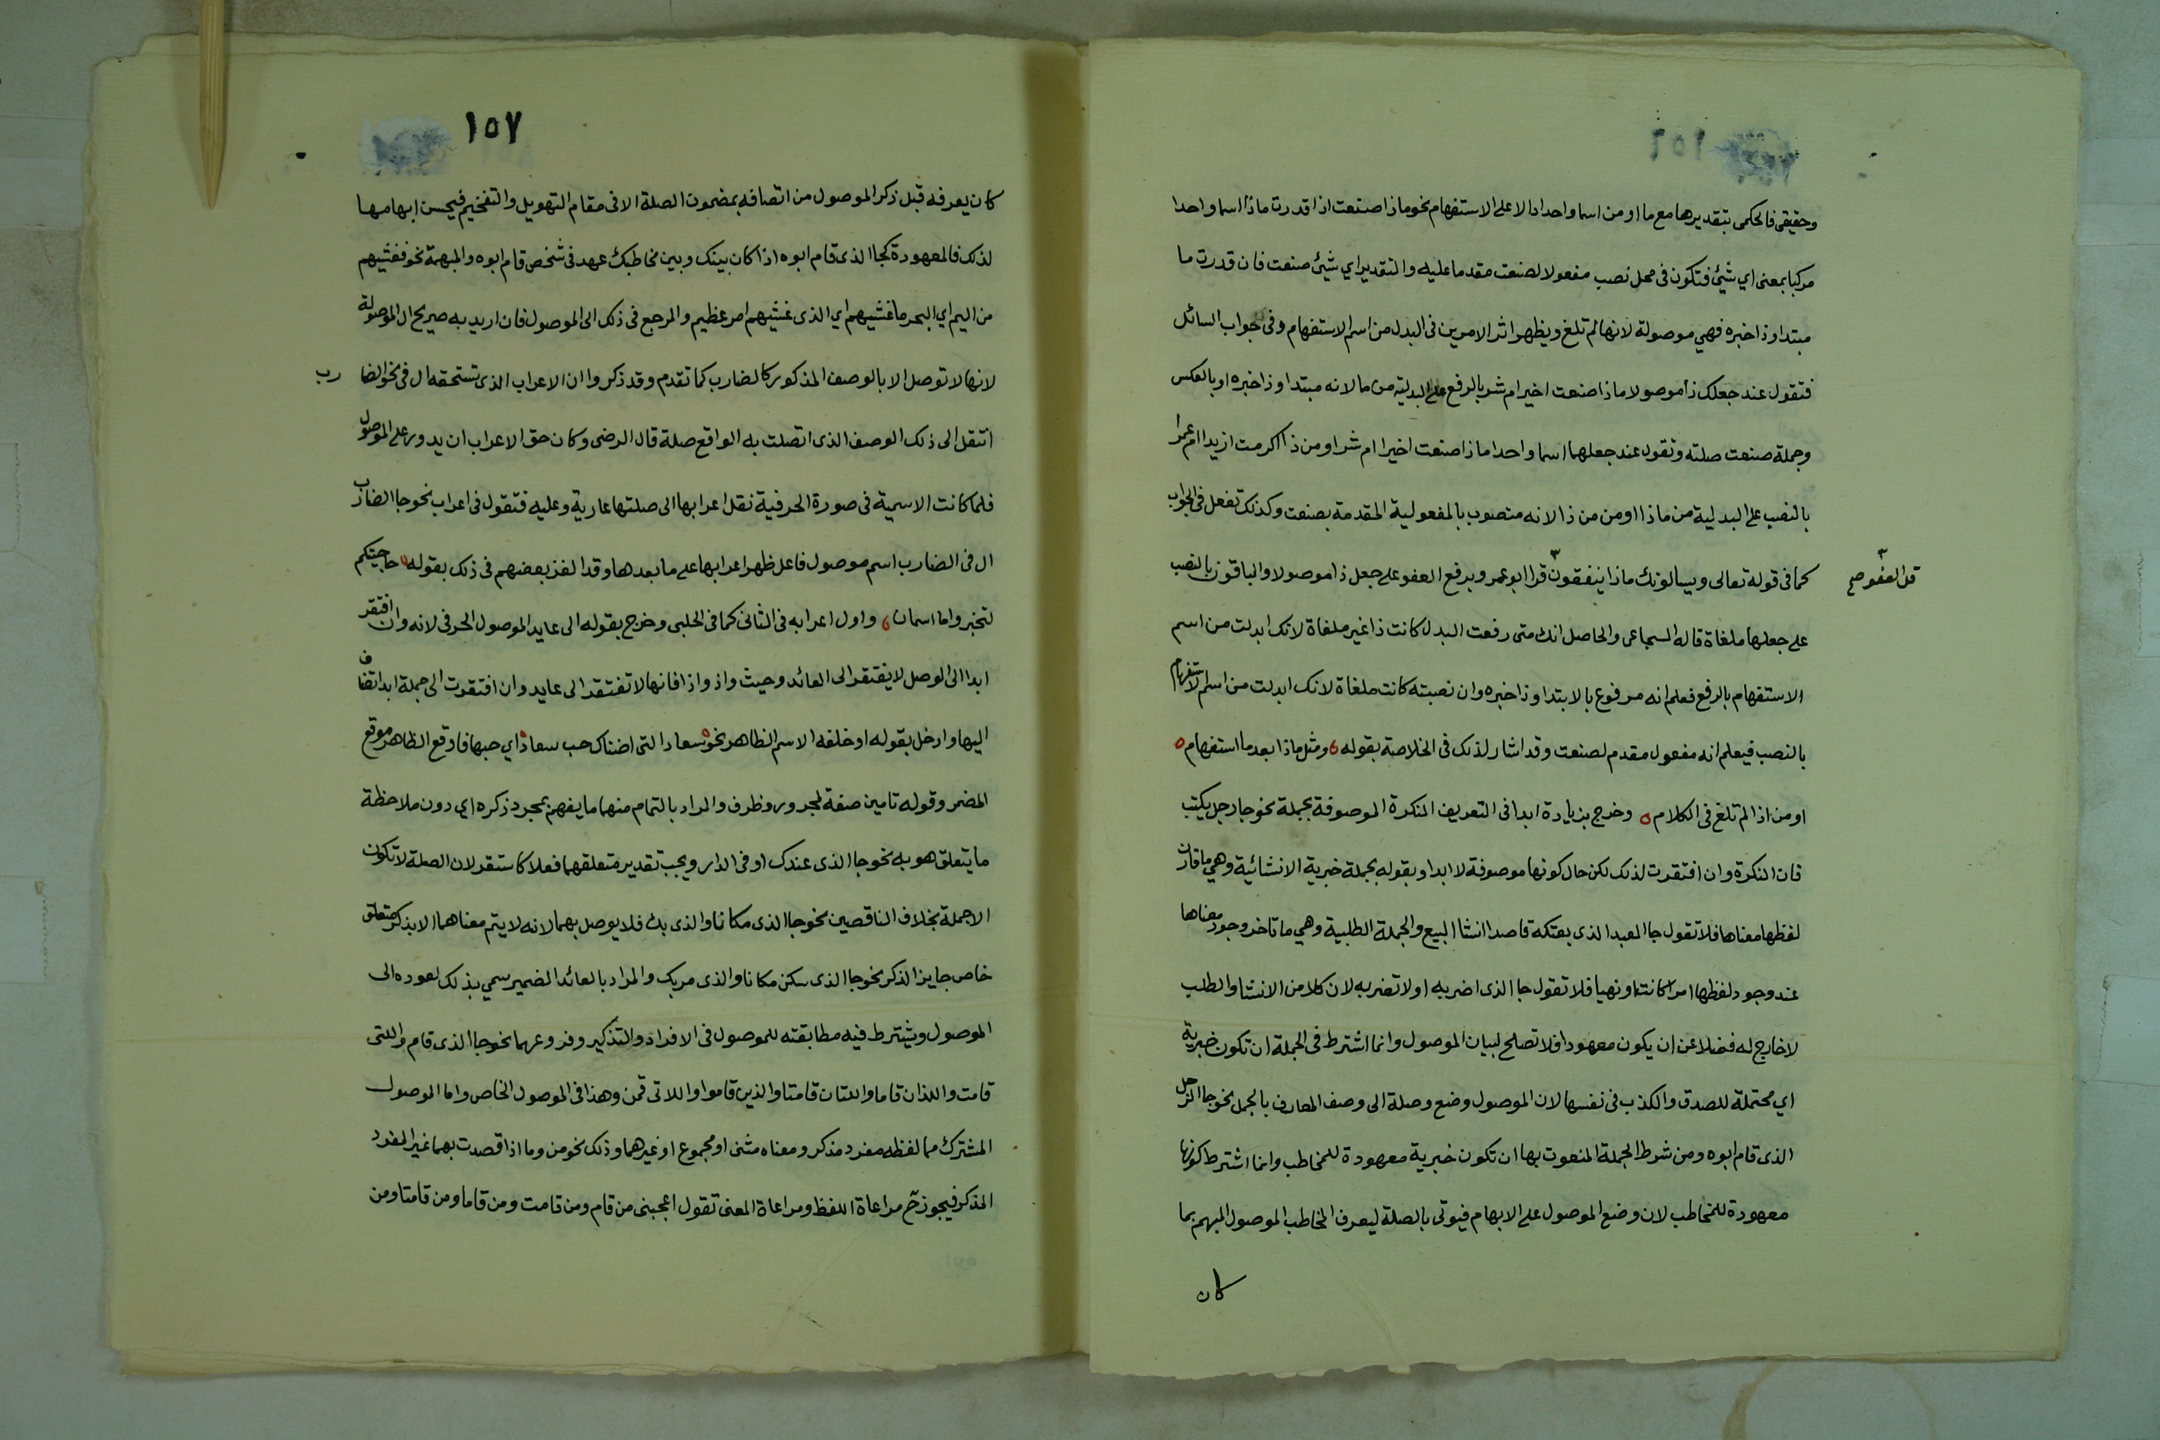 ١٥٦
وحقيقي فالحكمي بتقديرها مع ما او من اسما واحدا دالا على الاستفهام نحو ماذا صنعت اذا قدرت ماذا اسما واحدا
مركبا بمعنى اي شيئ فتكون في محل نصب مفعولا لصنعت مقدما عليه والتقدير اي شيئ صنعت فان قدرت ما
مبتدا وذا خبره فهي موصولة لانها لم تلغ ويظهر اثر الامرين في البدل من اسم الاستفهام وفي جواب السائل
فتقول عند جعلك ذا موصولا ماذا صنعت اخير ام شر بالرفع على البدلية من ما لانه مبتدا وذا خبره او بالعكس
وجملة صنعت صلته وتقول عند جعلهما اسما واحدا ماذا صنعت اخيرا ام شرا ومن ذا اكرمت ازيدا ام عمرا
بالنصب على البدلية من ماذا او من من ذا لانه منصوب بالمفعولية المقدمة بصنعت وكذلك تفعل في الجواب
كما في قوله تعالى ويسالونك ماذا ينفقون قرا ابو عمرو برفع العفو على جعل ذا موصولا والباقون بالنصب
قل العفو صح
على جعلها ملغاة قاله السجاعي والحاصل انك متى رفعت البدل كانت ذا غير ملغاة لانك ابدلت من اسم
الاستفهام بالرفع فعلم انه مرفوع بالابتدا وذا خبره وان نصبته كانت ملغاة لانك ابدلت من اسم الاستفهام
بالنصب فيعلم انه مفعول مقدم لصنعت وقد اشار لذلك في الخلاصة بقوله ومثل ماذا بعد ما استفهام
او من اذا لم تلغ في الكلام وخرج بزيادة ابدا في التعريف النكرة الموصوفة بجملة نحو جا رجل يكتب
فان النكرة وان افتقرت لذلك لكن حال كونها موصوفة لا ابدا وبقوله بجملة خبرية الانشائية وهي ما قارن
لفظها معناها فلا تقول جا العبد الذي بعتكه قاصدا انشا البيع والجملة الطلبية وهي ما تاخر وجود معناها
عند وجود لفظها امرا كانت او نهيا فلا تقول جا الذي اضربه او لا تضربه لان كلا من الانشا والطلب
لا خارج له فضلا عن ان يكون معهودا فلا تصلح لبيان الموصول وانما اشترط في الجملة ان تكون خبرية
اي محتملة للصدق والكذب في نفسها لان الموصول وضع وصلة الى وصف المعارف بالجمل نحو جا الرجل
الذي قام ابوه ومن شرط الجملة المنعوت بها ان تكون خبرية معهودة للمخاطب وانما اشترط كونها
معهودة للمخاطب لان وضع الموصول على الابهام فيوتى بالصلة ليعرف المخاطب الموصول المبهم بما
كان
١٥٧
كان يعرفه قبل ذكر الموصول من اتصافه بمضمون الصلة الا في مقام التهويل والتفخيم فيحسن ابهامها
لذلك فالمعهودة كجا الذي قام ابوه اذا كان بينك وبين مخاطبك عهد في شخص قام ابوه والمبهمة نحو فغشيهم
من اليم اي البحر ما غشيهم اي الذي غشيهم امر عظيم والمرجع في ذلك الى الموصول فان اريد به صريح ال الموصولة
لانها لا توصل الا بالوصف المذكور كالضارب كما تقدم وقد ذكروا ان الاعراب الذي تستحقه ال في نحو الضارب
انتقل الى ذلك الوصف الذي اتصلت به الواقع صلة قال الرضي وكان حق الاعراب ان يدور على الموصول
فلما كانت الاسمية في صورة الحرفية نقل اعرابها الى صلتها عارية وعليه فتقول في اعراب نحو جا الضارب
ال في الضارب اسم موصول فاعل ظهر اعرابها على ما بعدها وقد الغز بعضهم في ذلك بقوله حاجيتكم
لتخبروا ما اسمان واول اعرابه في الثاني كما في الحلبي وخرج بقوله الى عايد الموصول الحرفي لانه وان افتقر
ابدا الى الوصل لا يفتقر الى العائد وحيث واذ واذا فانها لا تفتقر الى عايد وان افتقرت الى جملة ابدا تضاف
اليها وادخل بقوله او خلفه الاسم الظاهر نحو سعاد التي اضناك حب سعادا اي حبها فاوقع الظاهر موقع
المضمر وقوله تامين صفة لمجرور وظرف والمراد بالتمام منهما ما يفهم بمجرد ذكره اي دون ملاحظة
ما يتعلق هو به نحو جا الذي عندك او في الدار ويجب تقدير متعلقهما فعلا كاستقر لان الصلة لا تكون
الا جملة بخلاف الناقصين نحو جا الذي مكانا والذي بك فلا يوصل بهما لانه لا يتم معناهما الا بذكر متعلق
خاص جايز الذكر نحو جا الذي سكن مكانا والذي مر بك والمراد بالعائد الضمير سمي بذلك لعوده الى
الموصول ويشترط فيه مطابقته للموصول في الافراد والتذكير وفروعهما نحو جا الذي قام والتي
قامت واللذان قاما واللتان قامتا والذين قاموا واللاتي قمن وهذا في الموصول الخاص واما الموصول
المشترك مما لفظه مفرد مذكر ومعناه مثنى او مجموع او غيرهما وذلك نحو من وما اذا قصدت بهما غير المفرد
المذكر فيجوز ح مراعاة اللفظ ومراعاة المعنى تقول اعجبني من قام ومن قامت ومن قاما ومن قامتا ومن